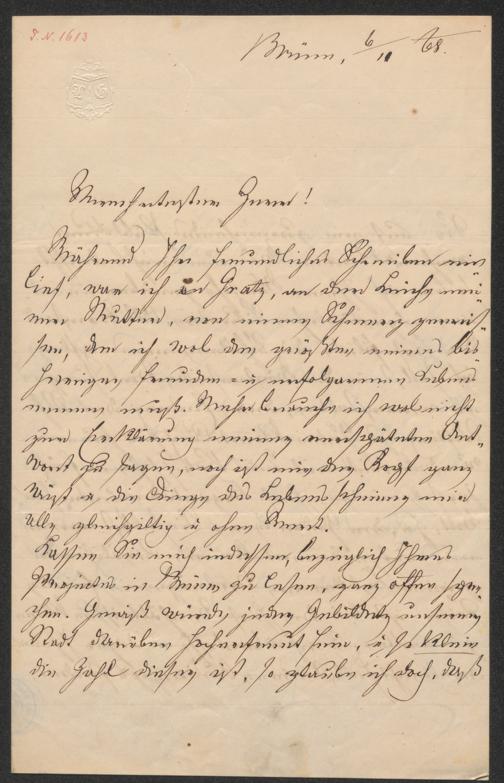 J. N. 1613
Brünn, 6/11 68.
LG
Verehrtester Freund!
Während Ihr freundliches Schreiben ein
lief, war ich in Gratz, an der Leiche mei
ner Mutter, von einem Schmerz zerris
sen, den ich wol den größten meines bis
herigen freuden- u erfolgarmen Lebens
nennen muß. Mehr brauche ich wol nicht
zur Erklärung meiner verspäteten Ant-
wort zu sagen, noch ist mir der Kopf ganz
wüst u die Dinge des Lebens scheinen mir
alle gleichgiltig u ohne Wert.
Lassen Sie mich indessen, bezüglich Ihres
Projectes in Brünn zu lesen, ganz offen spre
chen. Gewiß würde jeder Gebildete unserer
Stadt darüber hocherfreut sein, u so klein
die Zahl dieser ist, so glaube ich doch, daß